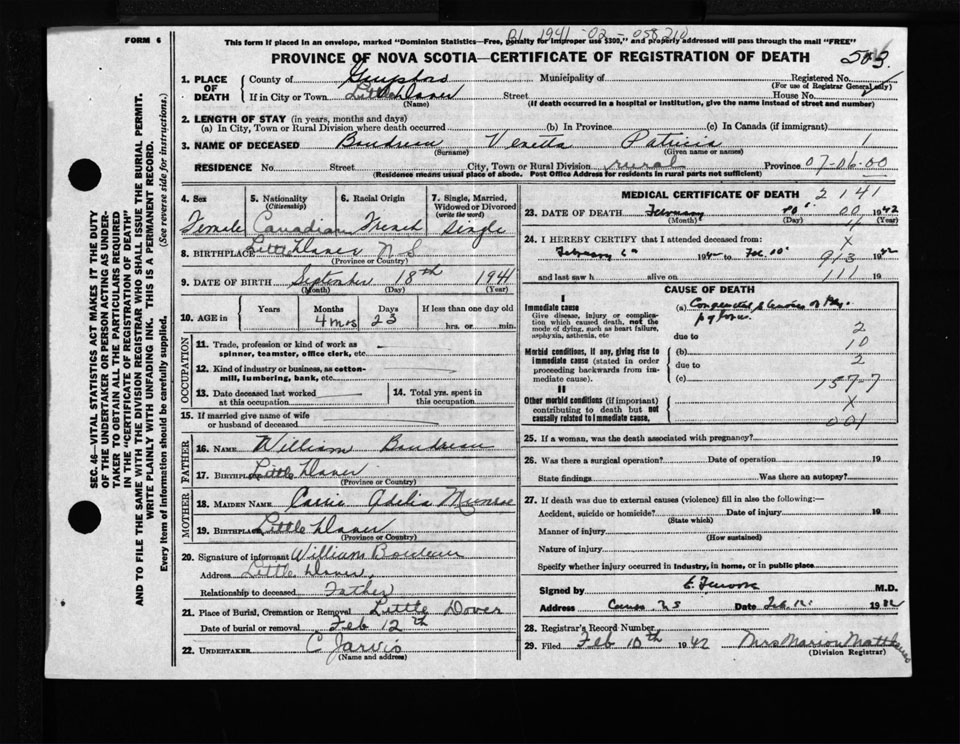 FORM 6
01 1941-02-058210
This form if placed in an envelope, marked "Dominion Statistics—Free, penalty for improper use $300," and properly addressed will pass through the mail "FREE"
PROVINCE OF NOVA SCOTIA—CERTIFICATE OF REGISTRATION OF DEATH
503
1. PLACE OF DEATH
County of
Municipality of
Registered No.
(For use of Registrar General only)
If in City or Town Little Dover Street House No.
(Name) (If death occurred in a hospital or institution, give the name instead of street and number)
2. LENGTH OF STAY (in years, months and days)
(a) In City, Town or Rural Division where death occurred (b) In Province (c) In Canada (if immigrant)
3. NAME OF DECEASED Boudreau Venetta Patricia 1
(Surname) (Given name or names)
RESIDENCE No. Street City, Town or Rural Division rural Province 07-06-00
(Residence means usual place of abode. Post Office Address for residents in rural parts not sufficient)
4. Sex 5. Nationality (Citizenship) 6. Racial Origin 7. Single, Married, Widowed or Divorced (write the word)
Female Canadian French Single
8. BIRTHPLACE Little Dover N S
(Province or Country)
9. DATE OF BIRTH September 18th 1941
(Month) (Day) (Year)
10. AGE in Years Months Days If less than one day old
4 mos 23 hrs. or min.
OCCUPATION
11. Trade, profession or kind of work as spinner, teamster, office clerk, etc.
12. Kind of industry or business, as cotton-mill, lumbering, bank, etc.
13. Date deceased last worked at this occupation 14. Total yrs. spent in this occupation
15. If married give name of wife or husband of deceased
FATHER
16. NAME William Boudreau
17. BIRTHPLACE Little Dover
(Province or Country)
MOTHER
18. MAIDEN NAME Carrie Adelia Munroe
19. BIRTHPLACE Little Dover
(Province or Country)
20. Signature of informant William Boudreau
Address Little Dover
Relationship to deceased Father
21. Place of Burial, Cremation or Removal Little Dover
Date of burial or removal Feb 12th
22. UNDERTAKER C Jarvis
(Name and address)
MEDICAL CERTIFICATE OF DEATH 2141
23. DATE OF DEATH February 10 00 1942
(Month) (Day) (Year)
24. I HEREBY CERTIFY that I attended deceased from: X
February 1942 to Feb. 10 913 1942
and last saw h alive on 111 19
CAUSE OF DEATH
I
Immediate cause (a) Congenital
Give disease, injury or complication which caused death, not the mode of dying, such as heart failure, asphyxia, asthenia, etc
due to 2
10
Morbid conditions, if any, giving rise to immediate cause (stated in order proceeding backwards from immediate cause).
(b)
due to 2
(c) 157-7
II
Other morbid conditions (if important) contributing to death but not causally related to immediate cause. X
001
25. If a woman, was the death associated with pregnancy?
26. Was there a surgical operation? Date of operation 19
State findings Was there an autopsy?
27. If death was due to external causes (violence) fill in also the following:—
Accident, suicide or homicide? Date of injury 19
(State which)
Manner of injury
(How sustained)
Nature of injury
Specify whether injury occurred in Industry, in home, or in public place
Signed by M.D.
Address Canso NS Date Feb. 12 1942
28. Registrar's Record Number
29. Filed Feb 10th 1942 Mrs Marion Matthews
(Division Registrar)
SEC. 46—VITAL STATISTICS ACT MAKES IT THE DUTY
OF THE UNDERTAKER OR PERSON ACTING AS UNDER-
TAKER TO OBTAIN ALL THE PARTICULARS REQUIRED
IN THE "CERTIFICATE OF REGISTRATION OF DEATH"
AND TO FILE THE SAME WITH THE DIVISION REGISTRAR WHO SHALL ISSUE THE BURIAL PERMIT.
WRITE PLAINLY WITH UNFADING INK. THIS IS A PERMANENT RECORD.
Every item of information should be carefully supplied. (See reverse side for instructions.)